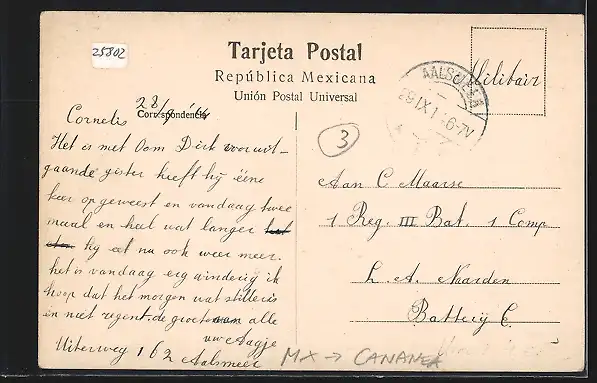 25802
Tarjeta Postal
República Mexicana
Unión Postal Universal
Militair
AALSMEER
29.IX.1 .6-7V
28/9 '14
Correspondencia
Cornelis
3
Het is met Oom Dirk vooruit-
gaande gister heeft hij éene
keer op geweest en vandaag twee
maal en heel wat langer
hij eet nu ook weer meer.
het is vandaag erg winderig ik
hoop dat het morgen wat stiller is
en niet regent. de groeten van alle
uw Aagje
Uiterweg 162 Aalsmeer
Aan C Maarse
1 Reg. III Bat. 1 Comp
L. A. Naarden
Batterij C.
MX → CANANEA